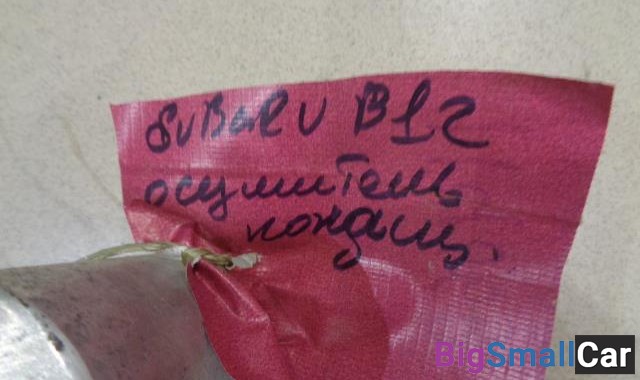 Subaru B12
осушитель
кондиц.
BigSmallCar